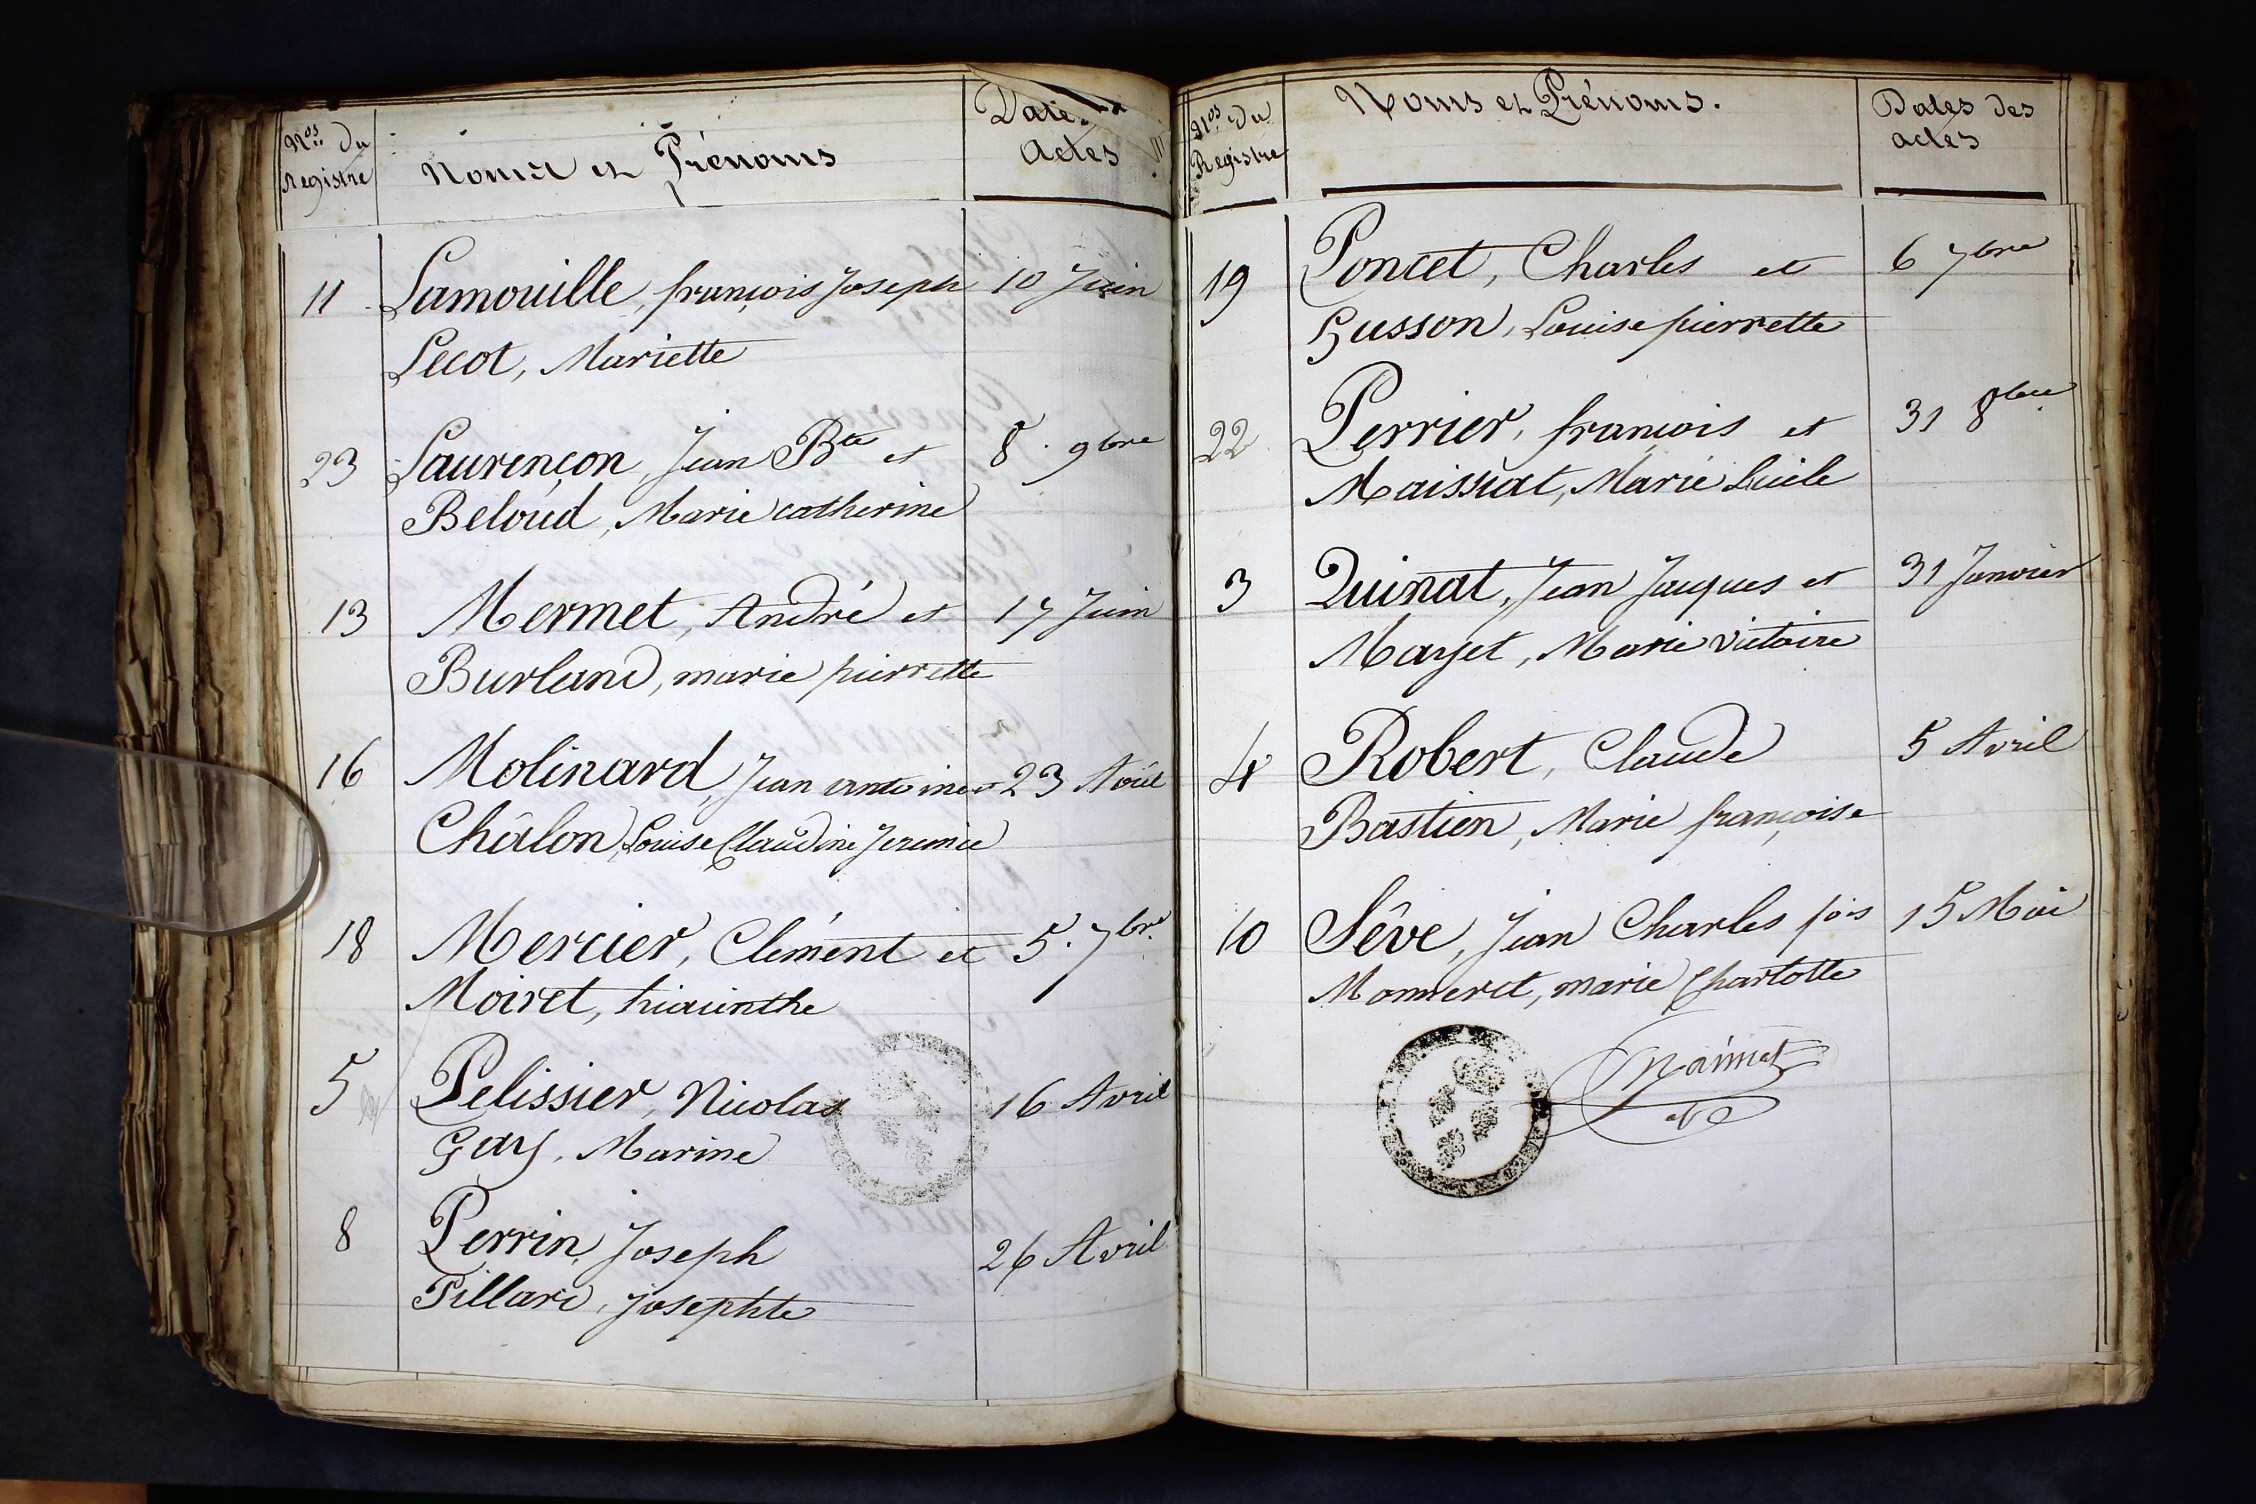 Nos du Registre
Noms et Prénoms
Dates Actes
11 Lamouille, françois Joseph 10 Juin
Lecot, Mariette
23 Laurençon, Jean Bte et 8. 9bre
Beloud, Marie catherine
13 Mermet, André et 17 Juin
Burland, marie pierrette
16 Molinard, Jean antoine et 23 Août
Châlon, Louise Claudine Jeremie
18 Mercier, Clément et 5. 7bre
Moiret, hiacinthe
5 Pelissier, Nicolas 16 Avril
Gay, Marine
8 Perrin, Joseph 26 Avril
Pillard, josephte
Nos du Registre
Noms et Prénoms.
Dates des actes
19 Poncet, Charles et 6 7bre
Husson, Louise pierrette
22 Perrier, françois et 31 8bre
Maissiat, Marie Lucile
3 Quinat, Jean Jacques et 31 Janvier
Mayet, Marie victoire
4 Robert, Claude 5 Avril
Bastien, Marie françoise
10 Sêve, Jean Charles fois 15 Mai
Monneret, marie Charlotte